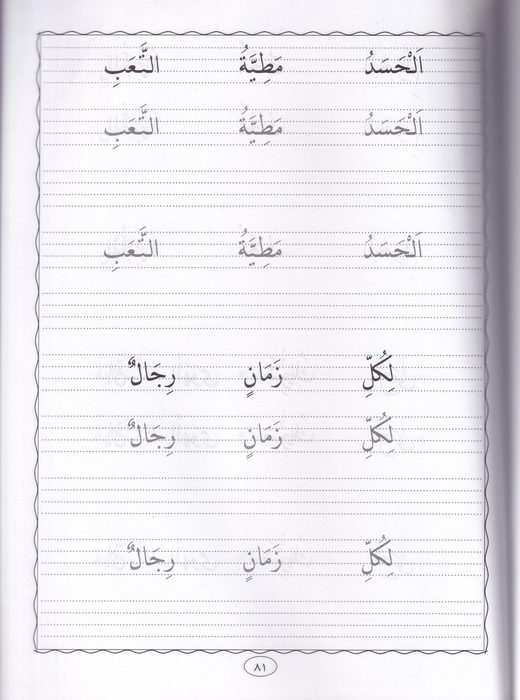 اَلْحَسَدُ مَطِيَّةُ التَّعَبِ
اَلْحَسَدُ مَطِيَّةُ التَّعَبِ
اَلْحَسَدُ مَطِيَّةُ التَّعَبِ
لِكُلِّ زَمَانٍ رِجَالٌ
لِكُلِّ زَمَانٍ رِجَالٌ
لِكُلِّ زَمَانٍ رِجَالٌ
٨١